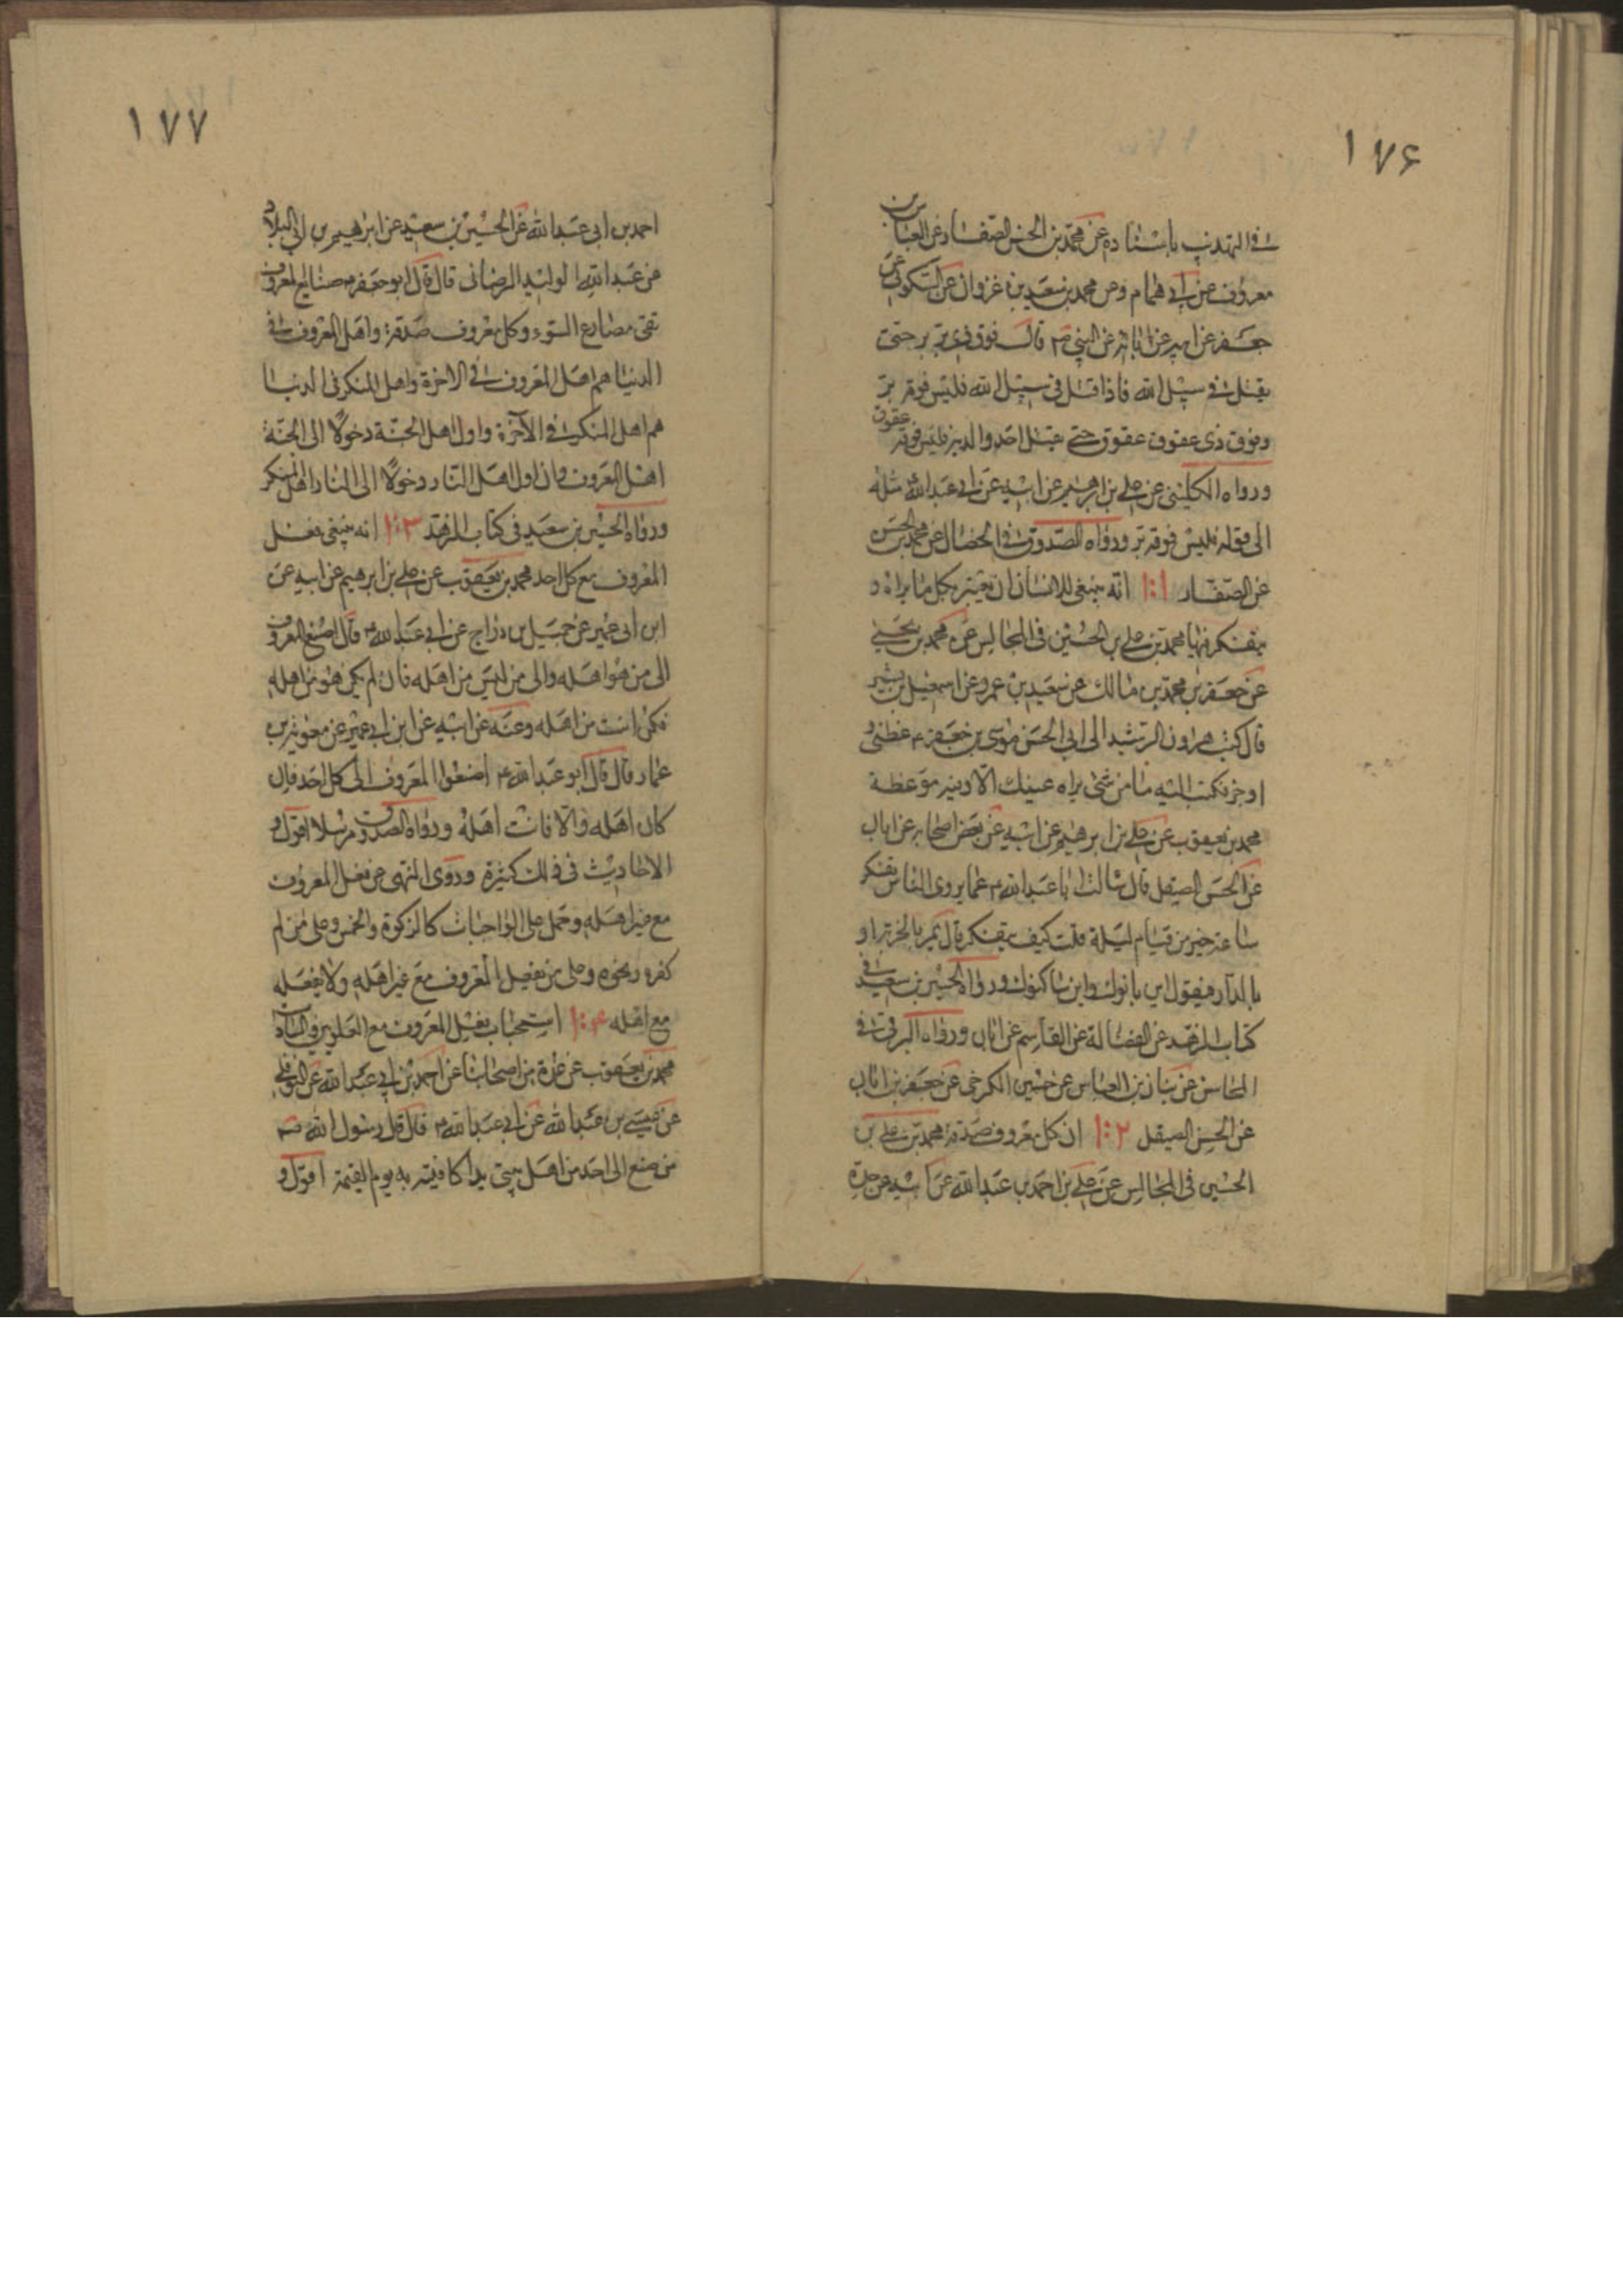 ١٧۶
فى التهذيب باسناده عن محمد بن الحسن الصفار عن العباس بن
معروف عن ابى همام وعن محمد بن سعيد بن غزوان عن السكونى عن
جعفر عن ابيه عن ابائه عن النبى ص قال فوق ذى بر بر حتى
يقتل فى سبيل الله فاذا قتل فى سبيل الله فليس فوقه بر
وفوق ذى عقوق عقوق حتى يقتل احد والديه فليس فوقه عقوق
ورواه الكلينى عن على بن ابرهيم عن ابيه عن ابى عبدالله ع مثله
الى قوله فليس فوقه بر ورواه الصدوق فى الخصال عن محمد بن الحسن
عن الصفار ١:١ انه ينبغى للانسان ان يعتبر بكل ما يراه و
يتفكر فيها محمد بن على بن الحسين فى المجالس عن محمد بن يحيى
عن جعفر بن محمد بن مالك عن سعيد بن عمرو عن اسمعيل بن بشير
قال كتب هارون الرشيد الى ابى الحسن موسى بن جعفر ع عظنى و
اوجز فكتب اليه ما من شئ يراه عينك الا وفيه موعظة
محمد بن يعقوب عن على بن ابرهيم عن ابيه عن بعض اصحابه عن ابان
عن الحسن الصيقل قال سالت ابا عبدالله ع عما يروى الناس تفكر
ساعة خير من قيام ليلة قلت كيف يتفكر قال يمر بالخربة او
بالدار فيقول اين بانوك واين ساكنوك ورواه الحسين بن سعيد فى
كتاب الزهد عن فضالة عن القاسم عن ابان ورواه البرقى فى
المحاسن عن بنان بن العباس عن حسين الكرخى عن جعفر بن ابان
عن الحسن الصيقل ١:٢ ان كل معروف صدقة محمد بن على بن
الحسين فى المجالس عن على بن احمد بن عبدالله عن ابيه عن جده
١٧٧
احمد بن ابى عبدالله عن الحسين بن سعيد عن ابرهيم بن ابى البلاد
عن عبدالله الوليد الوصافى قال قال ابو جعفر ع صنايع المعروف
تقى مصارع السوء وكل معروف صدقة واهل المعروف فى
الدنيا هم اهل المعروف فى الاخرة واهل المنكر فى الدنيا
هم اهل المنكر فى الآخرة واول اهل الجنة دخولا الى الجنة
اهل المعروف وان اول اهل النار دخولا الى النار اهل المنكر
ورواه الحسين بن سعيد فى كتاب الزهد ١:٣ انه ينبغى فعل
المعروف مع كل احد محمد بن يعقوب عن على بن ابرهيم عن ابيه عن
ابن ابى عمير عن جميل بن دراج عن ابى عبدالله ع قال اصنع المعروف
الى من هو اهله والى من ليس من اهله فان لم يكن هو من اهله
فكن انت من اهله وعنه عن ابيه عن ابن ابى عمير عن معوية بن
عمار قال قال ابو عبدالله ع اصنعوا المعروف الى كل احد فان
كان اهله والا فانت اهله ورواه الصدوق مرسلا اقول و
الاحاديث فى ذلك كثيرة وروى النهى عن فعل المعروف
مع غير اهله وحمل على الواجبات كالزكوة والخمس وعلى من لم
كفره ونحوه وعلى من يفعل المعروف مع غير اهله ولا يفعله
مع اهله ١:۴ استحباب فعل المعروف مع العلويين والسادات
محمد بن يعقوب عن عدة من اصحابنا عن احمد بن ابى عبدالله عن النوفلى
عن عيسى بن عبدالله عن ابى عبدالله ع قال قال رسول الله ص
من صنع الى احد من اهل بيتى يدا كافيته به يوم القيمة اقول و